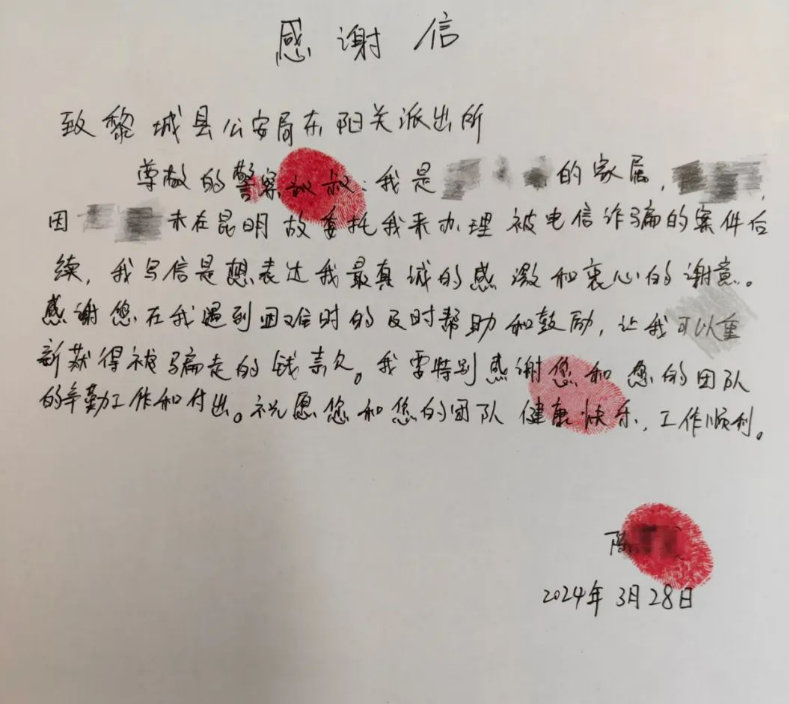 感谢信
致黎城县公安局东阳关派出所
尊敬的警察叔叔：我是的家属，，
因未在昆明故委托我来办理被电信诈骗的案件后
续，我写信是想表达我最真诚的感激和衷心的谢意。
感谢您在我遇到困难时的及时帮助和鼓励，让我可以重
新获得被骗走的钱款。我要特别感谢您和您的团队
的辛勤工作和付出。祝愿您和您的团队健康快乐，工作顺利。
陈
2024年3月28日